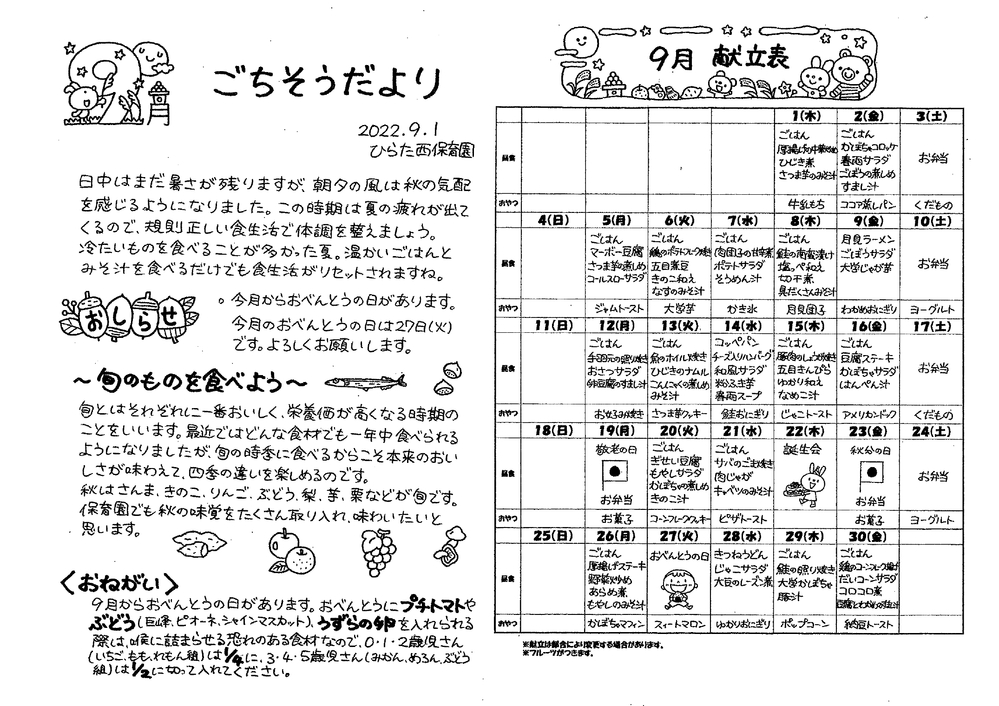 ごちそうだより
2022.9.1
ひらた西保育園
日中はまだ暑さが残りますが、朝夕の風は秋の気配
を感じるようになりました。この時期は夏の疲れが出て
くるので、規則正しい食生活で体調を整えましょう。
冷たいものを食べることが多かった夏。温かいごはんと
みそ汁を食べるだけでも食生活がリセットされますね。
おしらせ
。今月からおべんとうの日があります。
今月のおべんとうの日は27日(火)
です。よろしくお願いします。
～旬のものを食べよう～
旬とはそれぞれに一番おいしく、栄養価が高くなる時期の
ことをいいます。最近ではどんな食材でも一年中食べられる
ようになりましたが、旬の時季に食べるからこそ本来のおい
しさが味わえて、四季の違いを楽しめるのです。
秋はさんま、きのこ、りんご、ぶどう、梨、芋、栗などが旬です。
保育園でも秋の味覚をたくさん取り入れ、味わいたいと
思います。
〈おねがい〉
9月からおべんとうの日があります。おべんとうにプチトマトや
ぶどう(巨峰、ピオーネ、シャインマスカット)、うずらの卵を入れられる
際は、喉に詰まらせる恐れのある食材なので、0・1・2歳児さん
(いちご、もも、れもん組)は1/4に、3・4・5歳児さん(みかん、めろん、ぶどう
組)は1/2に切って入れてください。
9月 献立表
1(木) 2(金) 3(土)
昼食
ごはん
ひじき煮
さつま芋のみそ汁
ごはん
かぼちゃコロッケ
春雨サラダ
ごぼうの煮しめ
すまし汁
お弁当
おやつ 牛乳もち ココア蒸しパン くだもの
4(日) 5(月) 6(火) 7(水) 8(木) 9(金) 10(土)
昼食
ごはん
マーボー豆腐
さつま芋の煮しめ
コールスローサラダ
ごはん
五目煮豆
きのこ和え
なすのみそ汁
ごはん
肉団子の甘酢煮
ポテトサラダ
そうめん汁
ごはん
鮭の南蛮漬け
塩っぺ和え
切干煮
具だくさんみそ汁
月見ラーメン
ごぼうサラダ
大学じゃが芋
お弁当
おやつ ジャムトースト 大学芋 かき氷 月見団子 わかめおにぎり ヨーグルト
11(日) 12(月) 13(火) 14(水) 15(木) 16(金) 17(土)
昼食
ごはん
手羽元の照り焼き
おさつサラダ
卵豆腐のすまし汁
ごはん
魚のホイル焼き
ひじきのナムル
こんにゃくの煮しめ
みそ汁
コッペパン
チーズ入りハンバーグ
和風サラダ
粉ふき芋
春雨スープ
ごはん
豚肉のしょうが焼き
五目きんぴら
ゆかり和え
なめこ汁
ごはん
豆腐ステーキ
かぼちゃサラダ
はんぺん汁
お弁当
おやつ お好み焼き さつま芋クッキー 鮭おにぎり じゃこトースト アメリカンドック くだもの
18(日) 19(月) 20(火) 21(水) 22(木) 23(金) 24(土)
昼食
敬老の日
お弁当
ごはん
ぎせい豆腐
もやしサラダ
かぼちゃの煮しめ
きのこ汁
ごはん
サバのごま焼き
肉じゃが
キャベツのみそ汁
誕生会
秋分の日
お弁当
お弁当
おやつ お菓子 コーンフレーククッキー ピザトースト お菓子 ヨーグルト
25(日) 26(月) 27(火) 28(水) 29(木) 30(金)
昼食
ごはん
厚揚げステーキ
野菜炒め
あらめ煮
もやしのみそ汁
おべんとうの日
きつねうどん
じゃこサラダ
大豆のレーズン煮
ごはん
鮭の照り焼き
大学かぼちゃ
豚汁
ごはん
鶏のコーンフレーク揚げ
だいコーンサラダ
コロコロ煮
おやつ かぼちゃマフィン スィートマロン ゆかりおにぎり ポップコーン 納豆トースト
※献立は都合により変更する場合があります。
※フルーツがつきます。